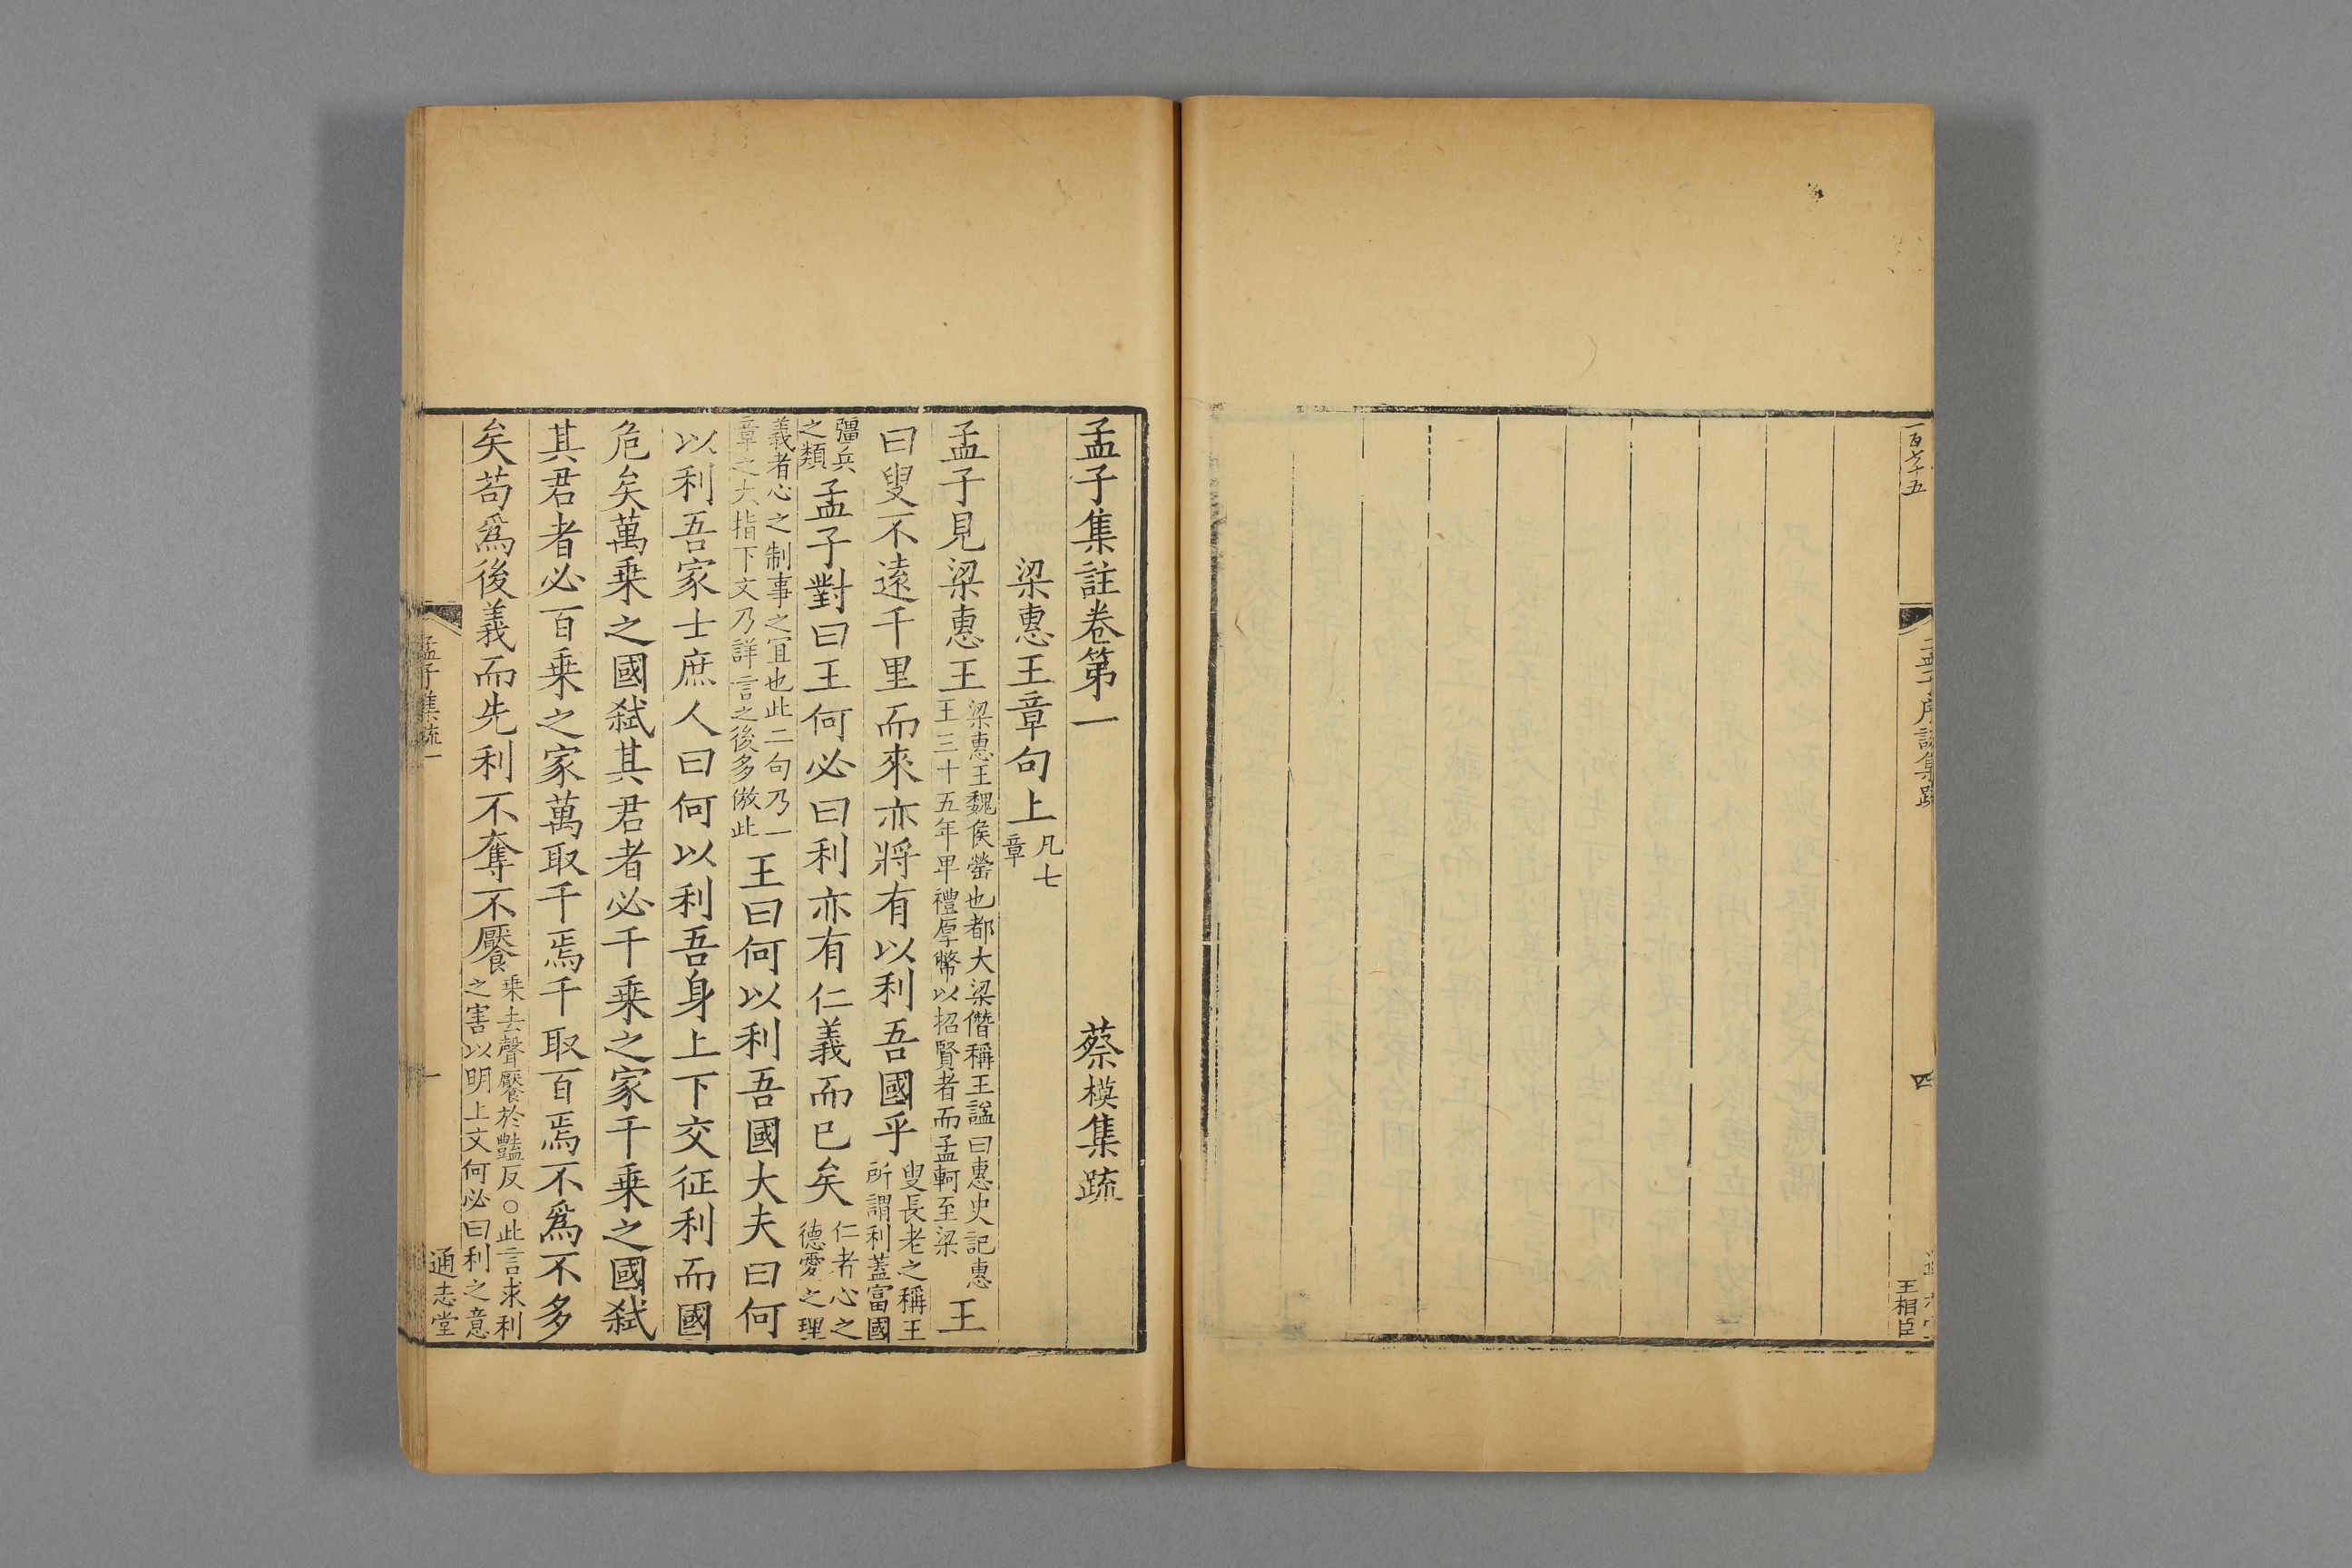 一百七十五
四
王相臣
孟子集註卷第一 蔡模集疏
梁惠王章句上 凡七章
孟子見梁惠王 梁惠王魏侯罃也都大梁僭稱王諡曰惠史記惠王三十五年卑禮厚幣以招賢者而孟軻至梁 王
曰叟不遠千里而來亦將有以利吾國乎 叟長老之稱王所謂利蓋富國
彊兵之類 孟子對曰王何必曰利亦有仁義而已矣 仁者心之德愛之理
義者心之制事之宜也此二句乃一章之大指下文乃詳言之後多倣此 王曰何以利吾國大夫曰何
以利吾家士庶人曰何以利吾身上下交征利而國
危矣萬乗之國弑其君者必千乗之家千乗之國弑
其君者必百乗之家萬取千焉千取百焉不爲不多
矣苟爲後義而先利不奪不饜 乗去聲饜於豔反○此言求利之害以明上文何必曰利之意
孟子集疏一
一
通志堂